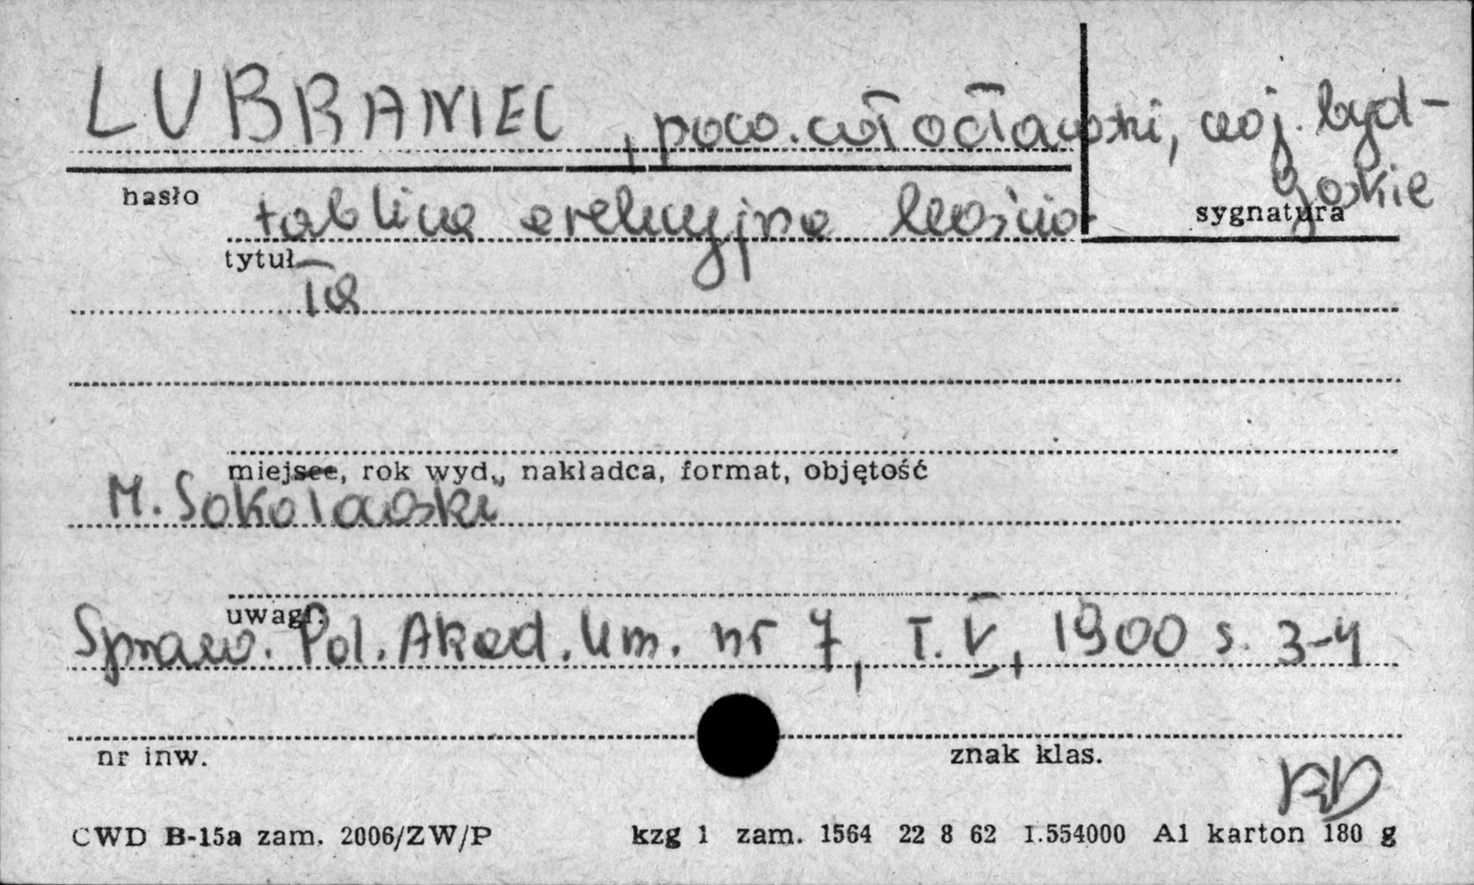 LUBRANIEC, pow. włocławski, woj. byd-
goskie
hasło
sygnatura
tablica erekcyjna kościo-
tytuł
ła
miejsce, rok wyd., nakładca, format, objętość
M. Sokołowski
uwagi:
Spraw. Pol. Akad. Um. nr 7, T. V, 1900 s. 3-4
nr inw.
znak klas.
CWD B-15a zam. 2006/ZW/P kzg 1 zam. 1564 22 8 62 1.554000 A1 karton 180 g